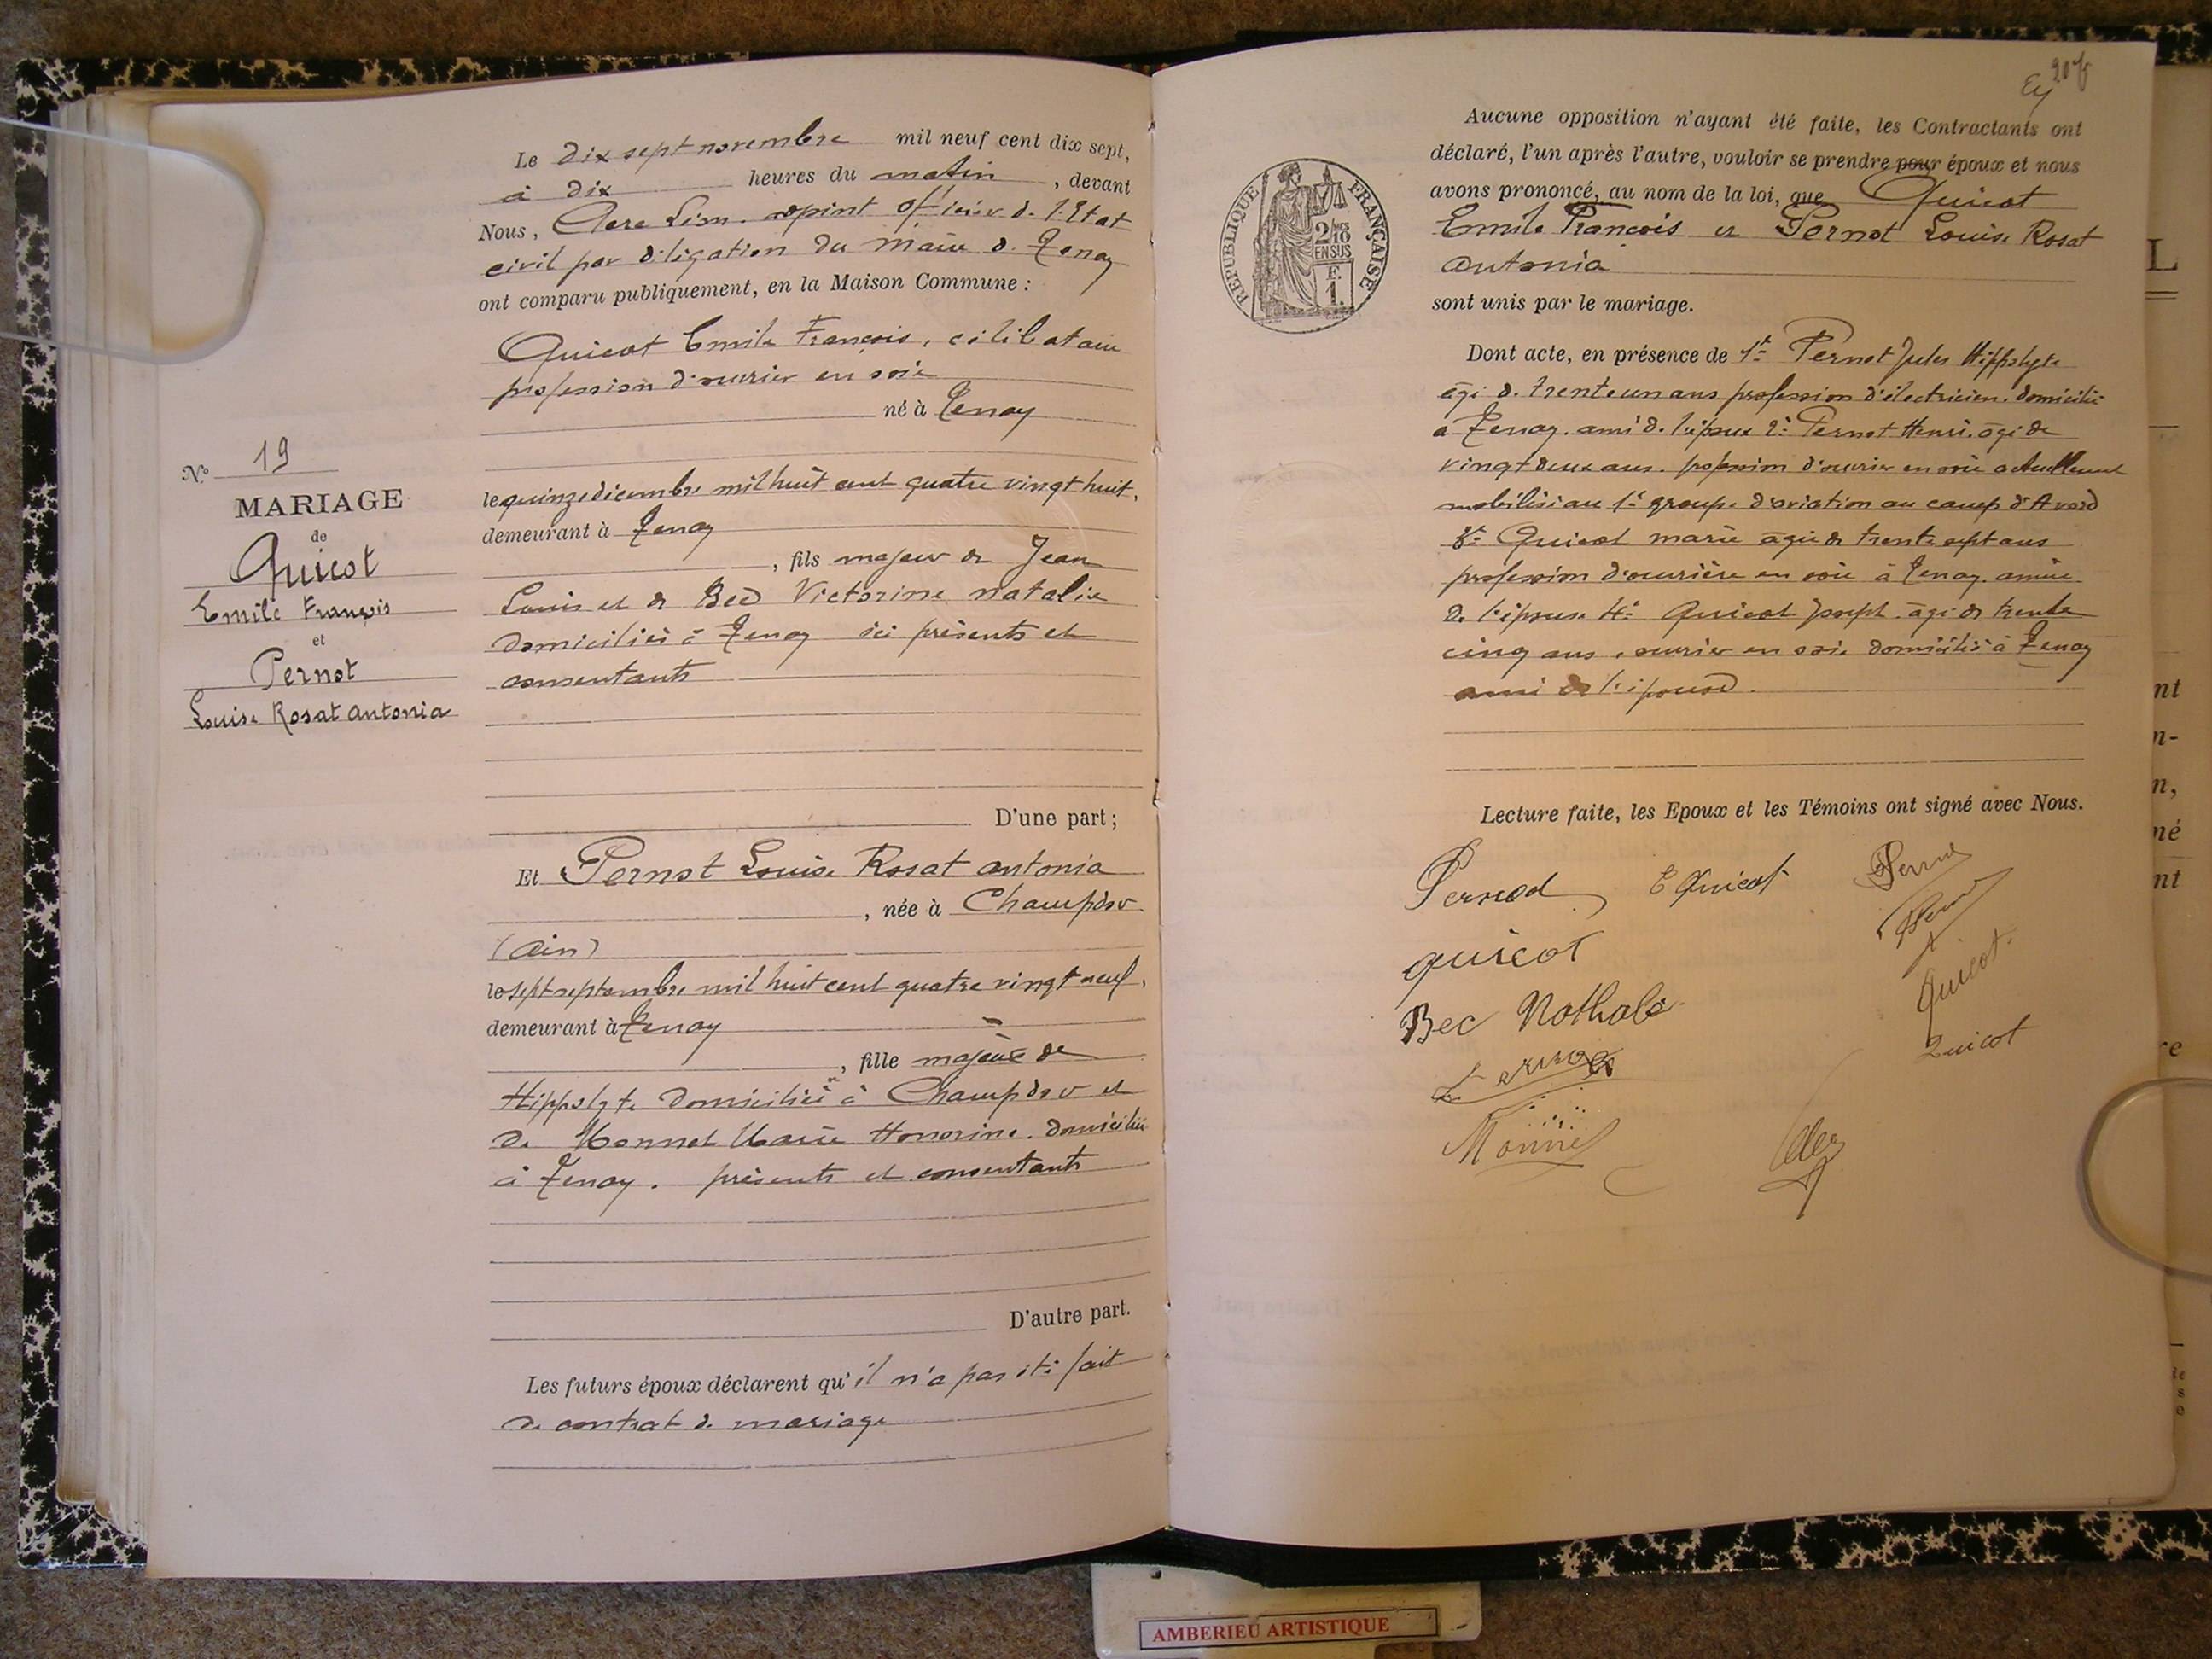 Le dix sept novembre mil neuf cent dix sept,
à dix heures du matin, devant
Nous, adjoint officier de l'Etat
civil par délégation du Maire de Tenay
ont comparu publiquement, en la Maison Commune :
Quicot Emile François, célibataire
profession d'ouvrier en soie
né à Tenay
le quinze décembre mil huit cent quatre vingt huit,
demeurant à Tenay
, fils majeur de Jean
Louis et de Bec Victorine Natalie
domiciliés à Tenay ici présents et
consentants
D'une part ;
Nº 19
MARIAGE
de
Quicot
Emile François
et
Pernot
Louise Rosat Antonia
Et Pernot Louise Rosat Antonia
, née à Champdor
(Ain)
le sept septembre mil huit cent quatre vingt neuf,
demeurant à Tenay
, fille majeure de
Hippolyte domicilié à Champdor et
de Monnet Marie Honorine. domiciliée
à Tenay. présents et consentants
D'autre part.
Les futurs époux déclarent qu'il n'a pas été fait
de contrat de mariage
207
Aucune opposition n'ayant été faite, les Contractants ont
déclaré, l'un après l'autre, vouloir se prendre pour époux et nous
avons prononcé, au nom de la loi, que Quicot
Emile François et Pernot Louise Rosat
Antonia
sont unis par le mariage.
RÉPUBLIQUE FRANÇAISE
2/10
EN SUS
F.
1.
Dont acte, en présence de 1º Pernot Jules Hippolyte
âgé de trente un ans profession d'électricien. domicilié
à Tenay. ami de l'époux 2º Pernot Henri. âgé de
vingt deux ans. profession d'ouvrier en soie actuellement
mobilisé au 1º groupe d'aviation au camp d'Avord
3º Quicot Marie âgée de trente sept ans
profession d'ouvrière en soie à Tenay. amie
de l'épouse 4º Quicot Joseph. âgé de trente
cinq ans, ouvrier en soie domicilié à Tenay
ami de l'épouse.
Lecture faite, les Epoux et les Témoins ont signé avec Nous.
Pernod E Quicot
quicot
Quicot
Bec Nathali
Quicot
AMBERIEU ARTISTIQUE